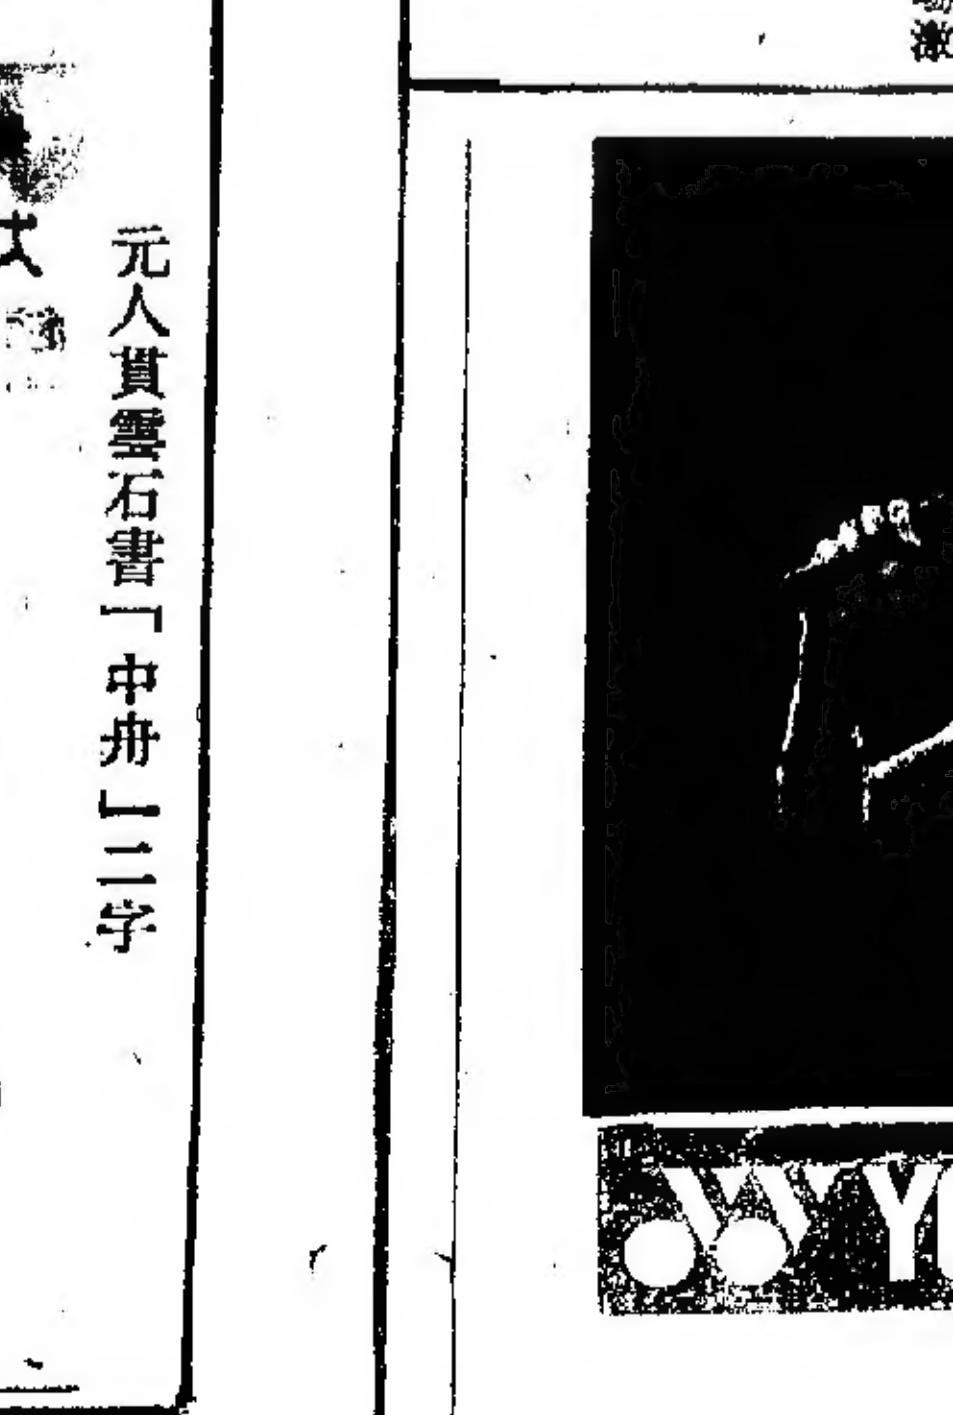 元人貫雲石書「中舟」二字
Y